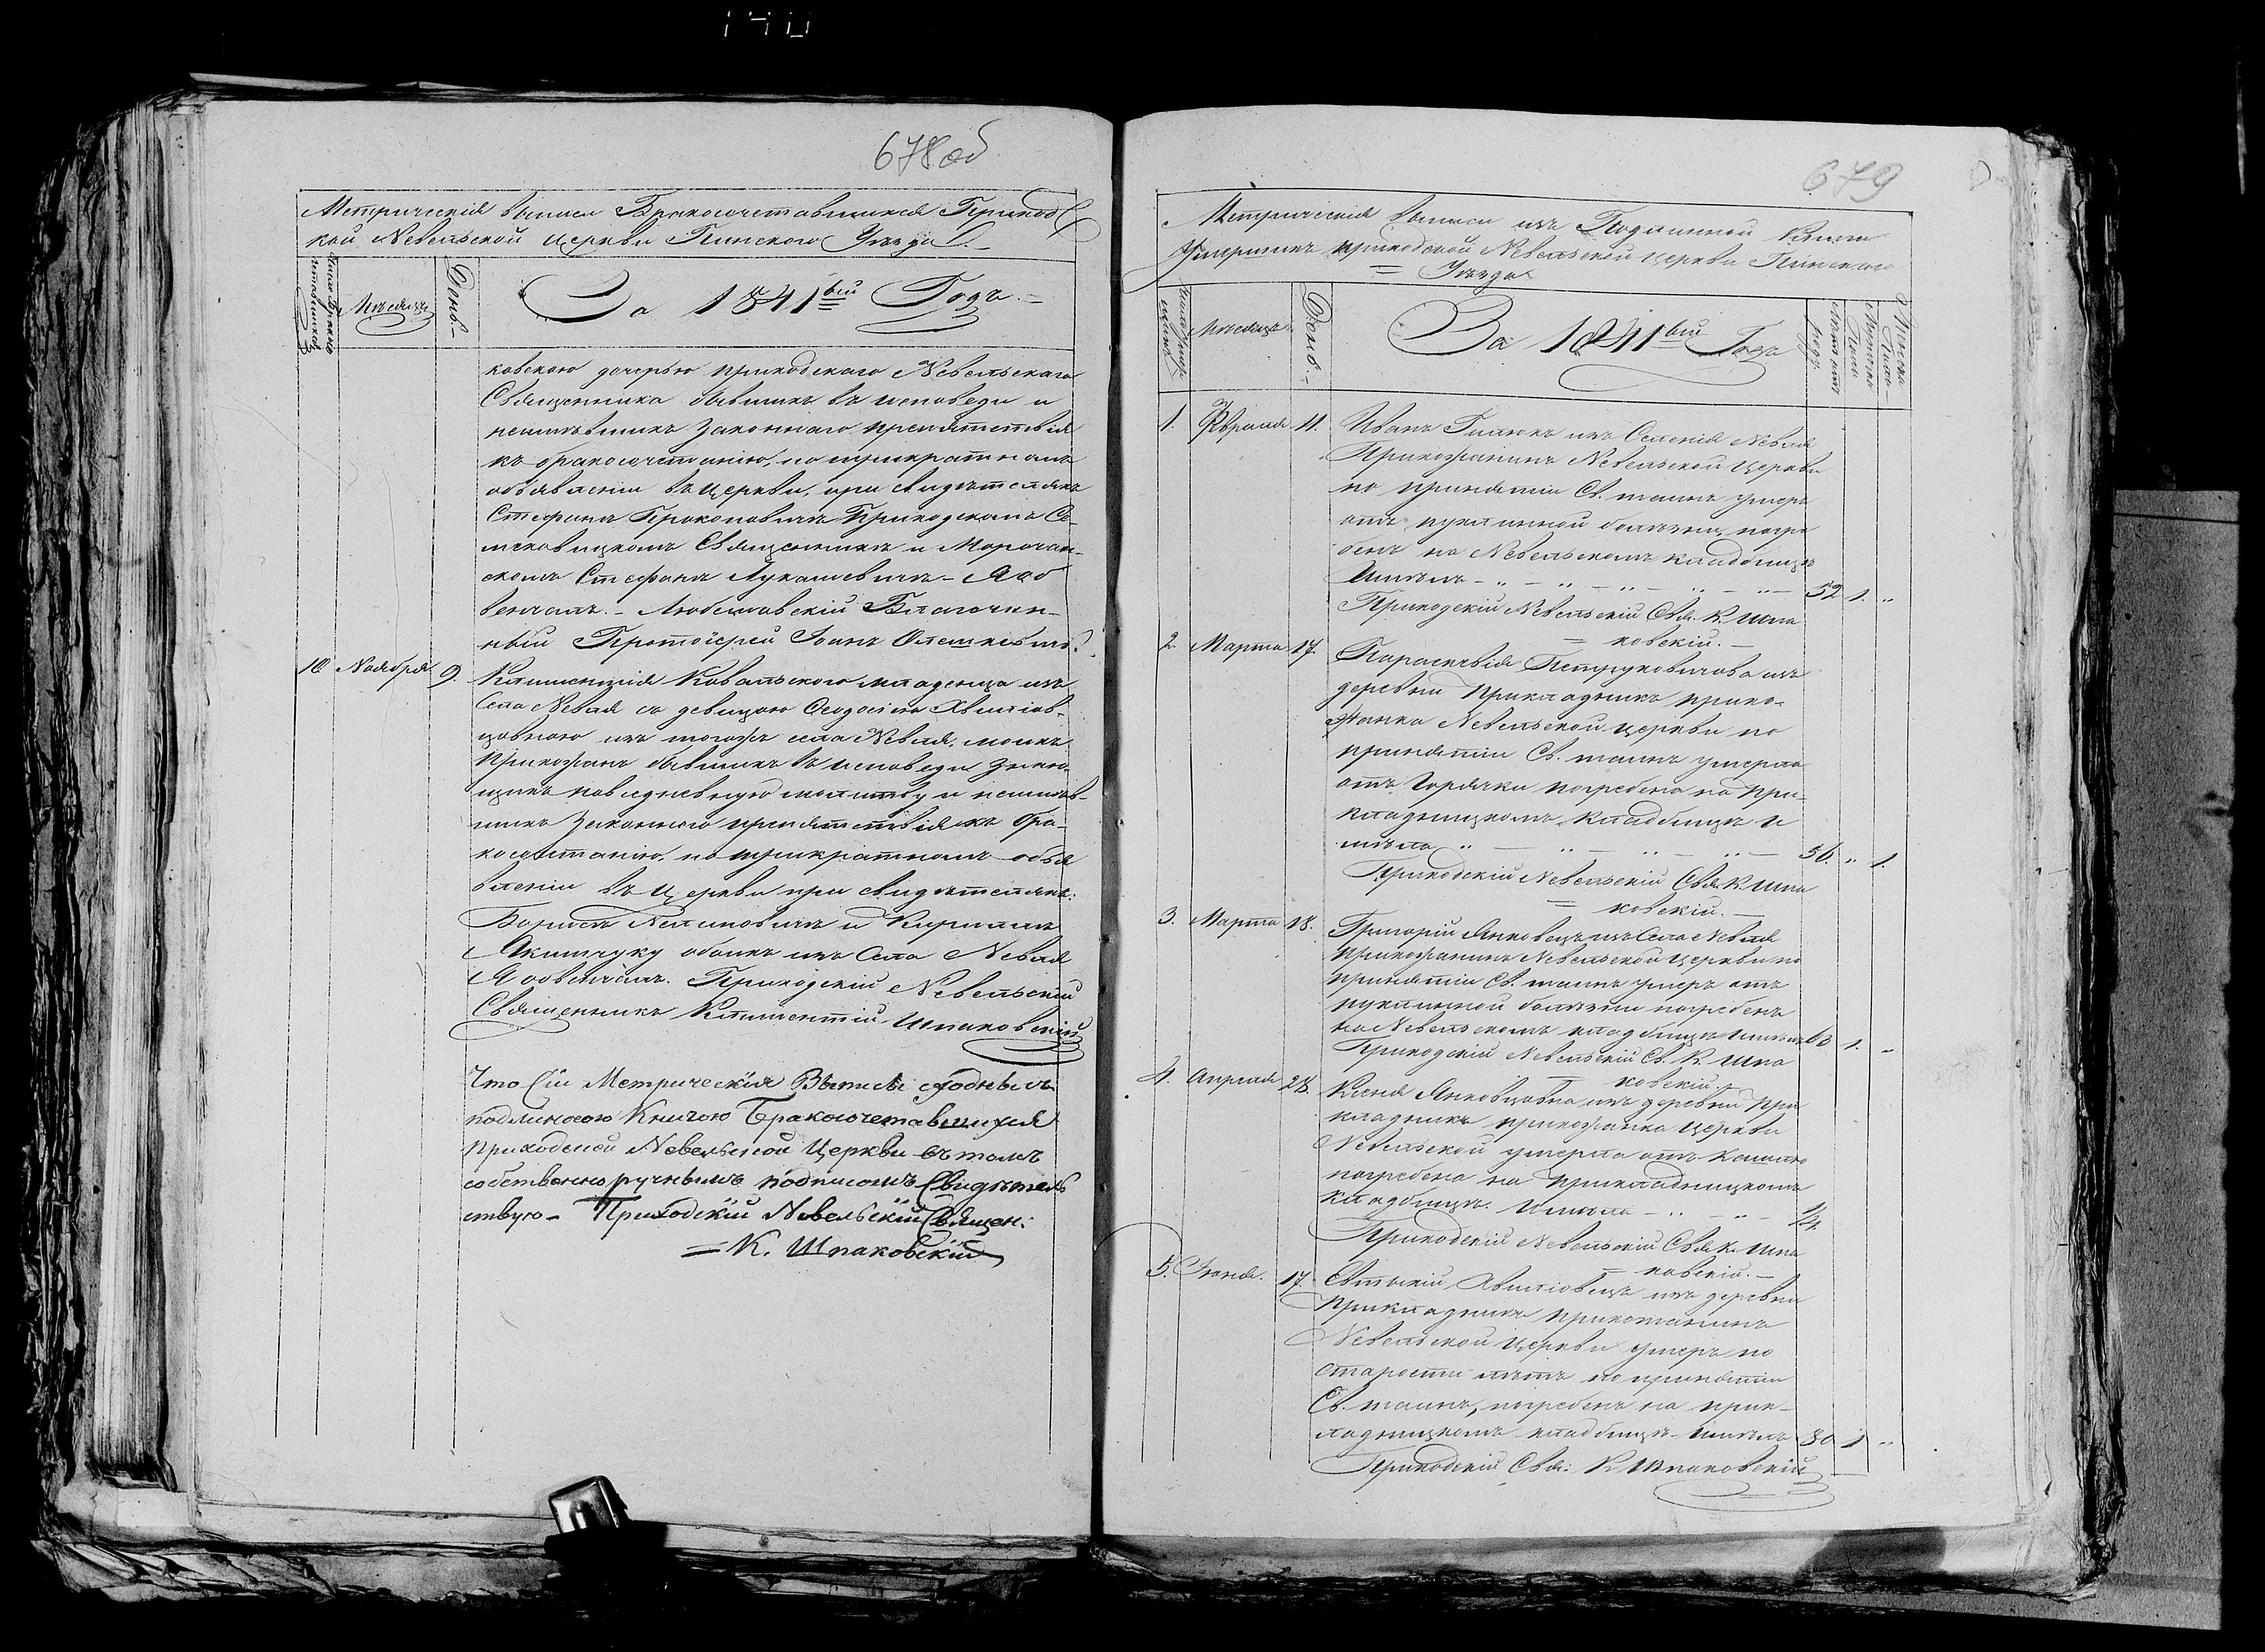 678 об
Метрическія выписи Бракосочетавшихся Приход
кой Невельской Церкви Пинского Уезда
Число Бракосочетавшихся
Месяцъ
День
За 1841ый Годъ
ковскою дочерью приходскаго Невельскаго
Священника бывшихъ въ исповеди и
неимѣвшихъ законнаго препятствія
къ бракосочетанію, по трикратномъ
объявленіи въ Церкви, при свидѣтеляхъ
Стефанъ Прокоповичъ Приходскомъ Се-
Священникъ и Морочан-
скомъ Стефанъ Лукашевичъ - Я об
венчалъ. - Любешовскій Благочин-
ный Протоіерей Іоанъ
10 Ноября 9. Климентія Ковальского младенца изъ
Села Невля съ девицою Феодосіею
цовною изъ тогожъ села Невля, моихъ
Прихожанъ бывшихъ въ исповеди знаю-
щихъ повседневную молитву и неимѣв-
шихъ законнаго препятствія къ бра-
косочтанію, по трикратномъ объя
вленіи въ Церкви при свидѣтеляхъ:
Борисъ и Кириллъ
обоихъ изъ Села Невля
Я обвенчалъ. Приходскій Невельскій
Священникъ Климентій Шпаковскій
Что Сіи Метрическія Выписи сходны съ
подлиною Книгою Бракосочетавшихся
приходской Невельской Церкви въ томъ
собственноручнымъ подписомъ Свидѣтель
ствую - Приходскій Невельскій Священ:
= К. Шпаковскій
679
Метрическія выписи изъ Подлинной Книги
Умершихъ приходской Невельской Церкви Пинскаго
= Уезда
Месяцъ
День
За 1841ый Годъ
1. Февраля 11. Иванъ изъ Селенія Невля
Прихожанинъ Невельской Церкви
по принятіи Св. таинъ умеръ
отъ пухлинной болѣзни, погре
бенъ на Невельскомъ кладбищѣ
Имѣлъ - " - " - " - " - 52 1. "
Приходскій Невельскій Свя. К. Шпа
= ковскій. -
2. Марта 17. Параскѣвія Петруковичова изъ
деревни Прикладникъ прихо-
жанка Невельской Церкви по
принятіи Св. таинъ умерла
отъ Горячки погребена на При-
кладницкомъ кладбищѣ и
мѣла " - " - " - " - 56. " 1.
Приходскій Невельскій Свя. К. Шпа
= ковскій. -
3. Марта 18. Григорій Янковецъ изъ Села Невля
Прихожанинъ Невельской Церкви по
принятіи Св. таинъ умеръ отъ
пухлинной болѣзни погребенъ
на Невельскомъ кладбищѣ имѣлъ 60 1. "
Приходскій Невельскій Св. К. Шпа
= ковскій. -
4. Апреля 28. Ксеня Янковцовна изъ деревни При
кладникъ прихожанка Церкви
Невельской умерла отъ Кашлю
погребена на Прикладницкомъ
кладбищѣ. Имѣла - " - " -
Приходскій Невельскій Свя. К. Шпа
= ковскій. -
5. Іюня. 17. изъ деревни
Прикладникъ прихожанинъ
Невельской Церкви умеръ по
старости лѣтъ по принятіи
Св. таинъ, погребенъ на прик-
ладницкомъ кладбищѣ имѣлъ 80 1 "
Приходскій Свя: К. Шпаковскій